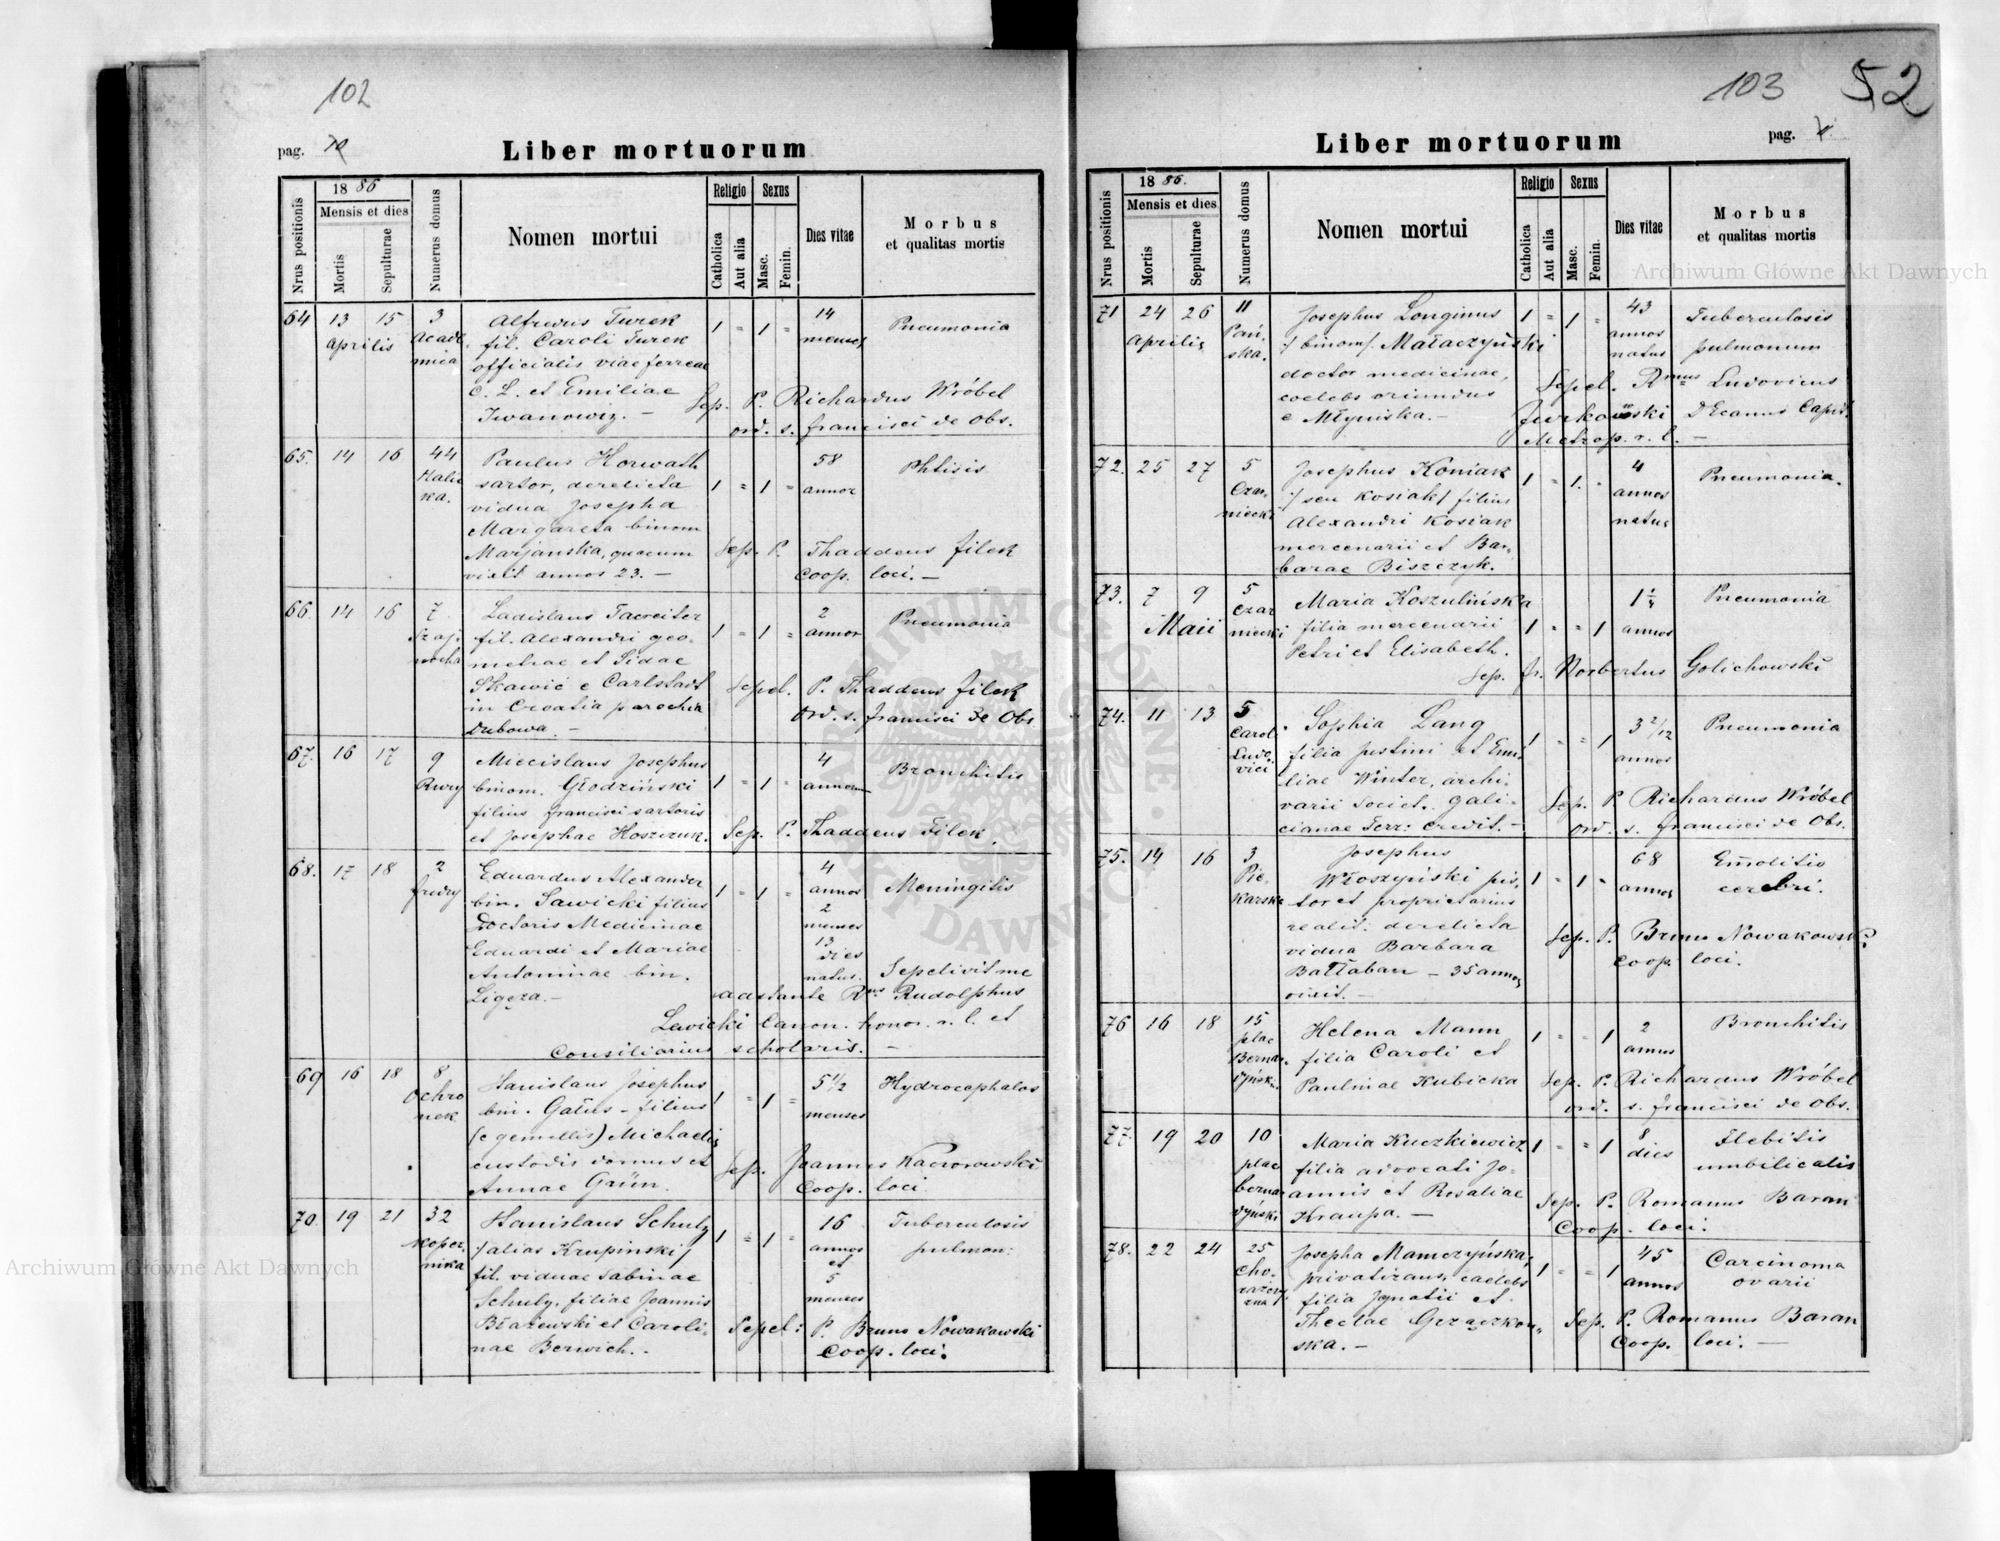 102
pag.
Liber mortuorum
Nrus positionis
18 86
Mensis et dies
Mortis
Sepulturae
Numerus domus
Nomen mortui
Religio
Catholica
Aut alia
Sexus
Masc.
Femin.
Dies vitae
Morbus
et qualitas mortis
64 13 15 3 Alfredus Turek 1 = 1 = 14 Pneumonia
Aprilis Acade fil. Caroli Turek menses
mica officialis viae ferreae
C. L. et Emiliae Sep. P. Richardus Wróbel
Iwanowiz. — ord. s. Francisci de Obs.
65. 14 16 44 Paulus Horwath 58 Phtisis
Halic sartor, derelicta 1 = 1 = annor
ka. vidua Josepha
Margareta binom
Marjanska, quacum Sep. P. Thaddeus Filek
vixit annos 23. — Coop. loci. —
66. 14 16 7 Ladislaus Tacreiter 2 Pneumonia
Szaj- fil. Alexandri geo- 1 = 1 = annor
nocha metrae et Sidae
Skawić e Carlstadt Sepel. P. Thaddeus Filek
in Croatia parochia Ord. s. Francisci de Obs
Dubowa. —
67. 16 17 9 Miecislaus Josephus 4 Bronchitis
Rury binom. Głodziński 1 = 1 = annorum
filius Francisci sartoris
et Josephae Hoszczuk. Sep. P. Thaddeus Filek.
68. 17 18 2 Eduardus Alexander 4 Meningitis
Fredry bin. Sawicki filius 1 = 1 = annos
Doctoris Medicinae 2 menses
Eduardi et Mariae 13 dies
Antoninae bin. natus. Sepelivit me
Ligęza. — adstante Rmus Rudolphus
Lewicki Canon. honor. r. l. et
Consiliarius scholaris. —
69 16 18 8 Stanislaus Josephus 5 1/2 Hydrocephalos
Ochro bin. Gałus - filius 1 = 1 = menses
nek (e gemellis) Michaelis
custodis domus et Sep. Joannes Kaczorowski
Annae Grün. Coop. loci.
70. 19 21 32 Stanislaus Schulz 16 Tuberculosis
Koper- /alias Krupinski/ 1 = 1 = annos pulmon:
nika fil. viduae Sabinae et 5
Schulz, filiae Joannis menses
Błażewski et Caroli- Sepel: P. Bruno Nowakowski
nae Berwich. - Coop. loci.
103 52
Liber mortuorum
pag.
Nrus positionis
18 86.
Mensis et dies
Mortis
Sepulturae
Numerus domus
Nomen mortui
Religio
Catholica
Aut alia
Sexus
Masc.
Femin.
Dies vitae
Morbus
et qualitas mortis
71 24 26 11 Josephus Longinus 1 = 1 = 43 Tuberculosis
Aprilis Pań- /binom/. Małaczyński annos pulmonum
ska. doctor medicinae, natus
coelebs oriundus Sepel. Rmus Ludovicus
e Młyniska. — Jurkowski Decanus Capit.
Metrop. r. l. —
72. 25 27 5 Josephus Koniak 4 Pneumonia.
Czar- /seu Kosiak/ filius 1 = 1. = annos
niecki Alexandri Kosiak natus
mercenarii et Bar-
barae Biszczyk.
73. 7 9 5 Maria Koszulińska 1 1/4 Pneumonia
Maii Czar niecki filia mercenarii 1 = = 1 annos
Petri et Elisabeth.
Sep. fr. Norbertus Golichowski
74. 11 13 5 Sophia Lang 3 2/12 Pneumonia
Carol filia Justini et Emi- 1 = = 1 annos
Ludo- liae Winter, archi-
vici varii Societ. Gali- Sep. P. Richardus Wróbel
cianae Terr: credit. — ord. s. Francisci de Obs.
75. 14 16 3 Josephus 68 Emolitio
Pie- Włoszyński pis- 1 = 1 = annos cerebri.
karska tor et proprietarius
realit. derelicta Sep. P. Bruno Nowakowski
vidua Barbara Coop. loci.
Bałłaban — 35 annos
vixit. —
76 16 18 15 Helena Mann 1 = = 1 2 Bronchitis
plac filia Caroli et annos
Bernar- Paulinae Kubicka Sep. P. Richardus Wróbel
dyński ord. s. Francisci de Obs.
77. 19 20 10 Maria Kuczkiewicz 1 = = 1 8 Flebitis
plac filia advocati Jo- dies umbilicalis
berna- annis et Rosaliae Sep. P. Romanus Baran
dyński Kraupa. — Coop. loci.
78. 22 24 25 Josepha Mamczyńska, 45 Carcinoma
Cho- privatizans, caelebs 1 = = 1 annos ovarii
rażczy zna filia Ignatii et
Theclae Grzączkow- Sep. P. Romanus Baran
ska. — Coop. loci. —